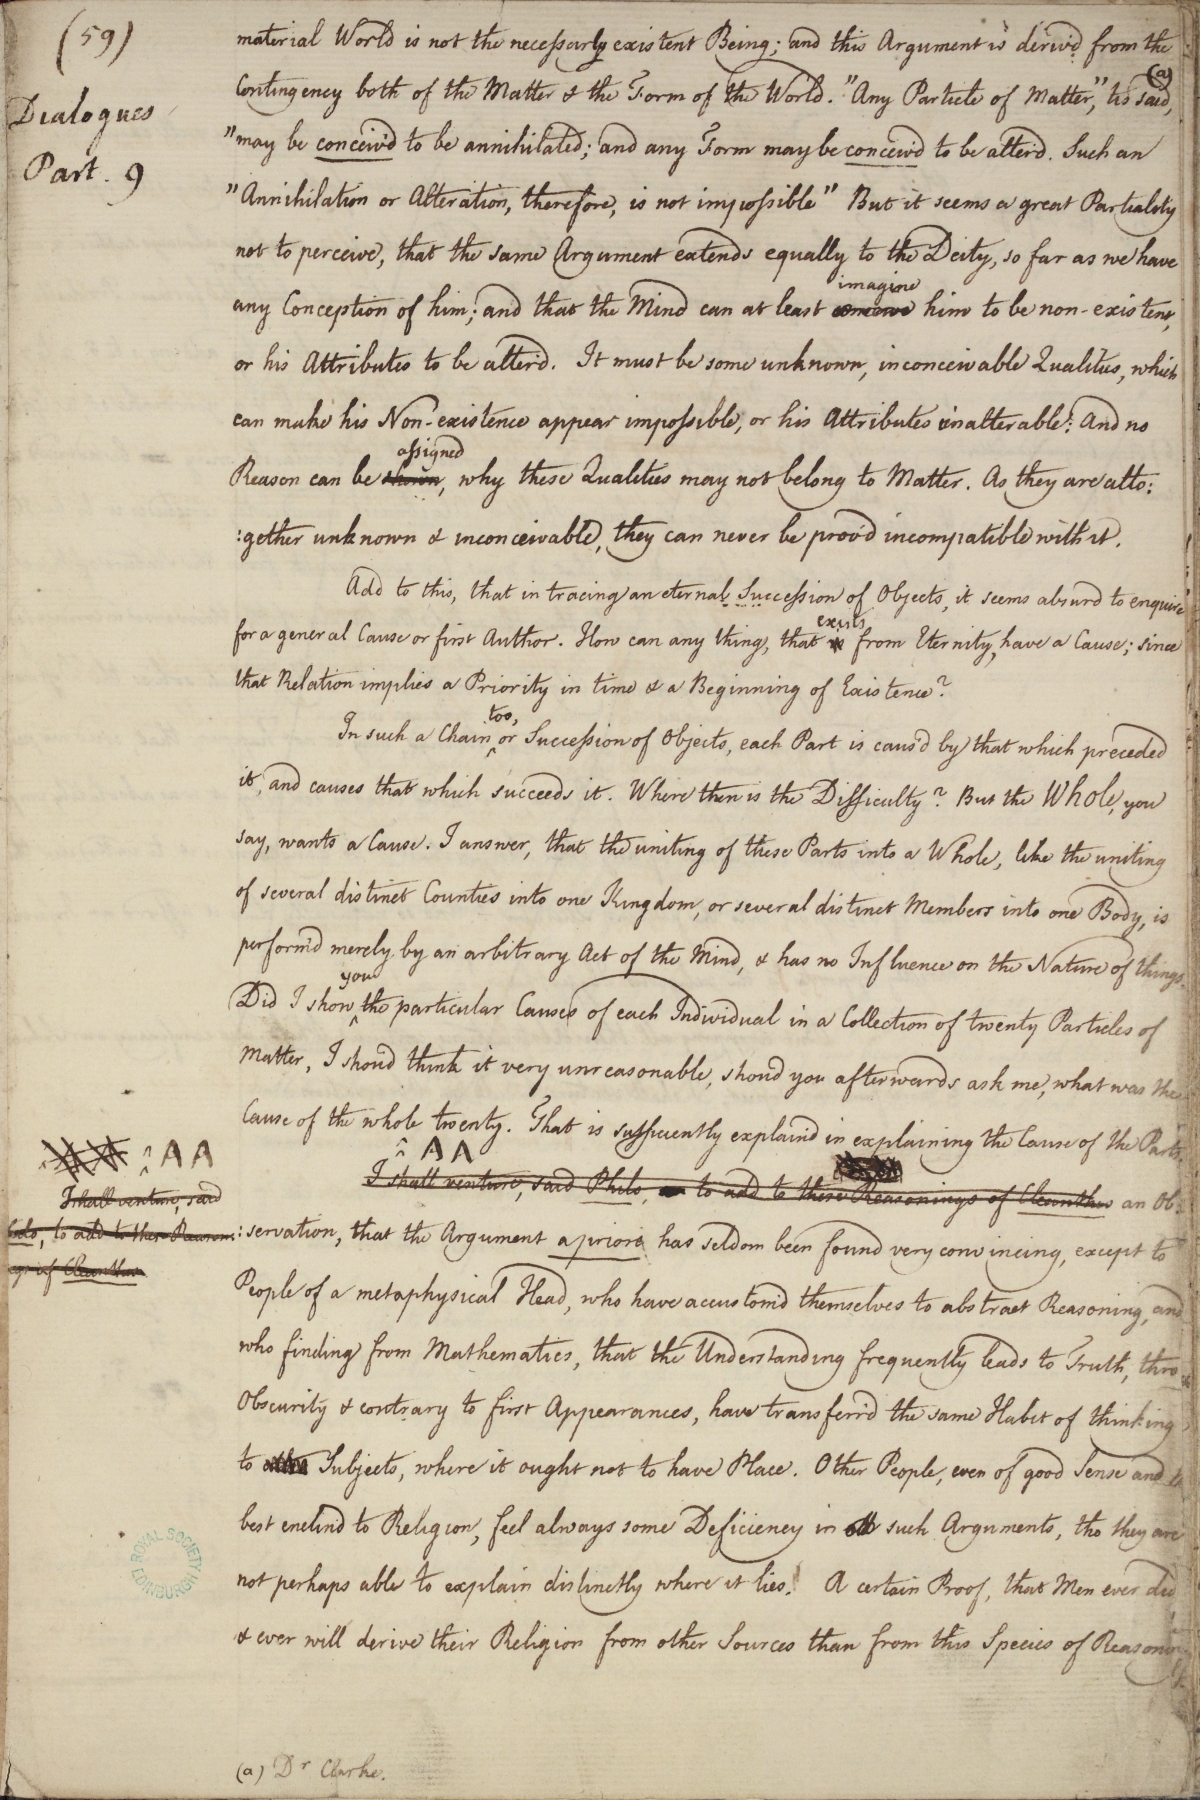 (59)
Dialogues
Part. 9
material World is not the necessarly existent Being; and this Argument is deriv'd from the
Contingency both of the Matter & the Form of the World. "Any Particle of Matter," tis said, (a)
"may be conceiv'd to be annihilated; and any Form may be conceiv'd to be alter'd. Such an
"Annihilation or Alteration, therefore, is not impossible" But it seems a great Partiality
not to perceive, that the same Argument extends equally to the Deity, so far as we have
imagine
any Conception of him; and that the Mind can at least conceive him to be non-existent,
or his Attributes to be alter'd. It must be some unknown, inconceivable Qualities, which
can make his Non-existence appear impossible, or his Attributes inalterable: And no
assigned
Reason can be shown, why these Qualities may not belong to Matter. As they are alto:
:gether unknown & inconceivable, they can never be prov'd incompatible with it.
Add to this, that in tracing an eternal Succession of Objects, it seems absurd to enquire
exists
for a general Cause or first Author. How can any thing, that is from Eternity, have a Cause; since
that Relation implies a Priority in time & a Beginning of Existence?
too,
In such a Chain or Succession of Objects, each Part is caus'd by that which preceded
it, and causes that which succeeds it. Where then is the Difficulty? But the Whole, you
say, wants a Cause. I answer, that the uniting of these Parts into a Whole, like the uniting
of several distinct Counties into one Kingdom, or several distinct Members into one Body, is
perform'd merely by an arbitrary Act of the Mind, & has no Influence on the Nature of things.
you
Did I show the particular Causes of each Individual in a Collection of twenty Particles of
Matter, I shou'd think it very unreasonable, shou'd you afterwards ask me, what was the
Cause of the whole twenty. That is sufficiently explain'd in explaining the Cause of the Parts.
AA
AA
I shall venture, said Philo, to add to these Reasonings of Cleanthes an Ob:
I shall venture, said
Philo, to add to these Reason:
gs of Cleanthes
:servation, that the Argument a priori has seldom been found very convincing, except to
People of a metaphysical Head, who have accustom'd themselves to abstract Reasoning, and
who finding from Mathematics, that the Understanding frequently leads to Truth, thro
Obscurity & contrary to first Appearances, have transferr'd the same Habit of thinking
to Subjects, where it ought not to have Place. Other People, even of good Sense and
best enclin'd to Religion, feel always some Deficiency in all such Arguments, tho they are
not perhaps able to explain distinctly where it lies. A certain Proof, that Men ever did
& ever will derive their Religion from other Sources than from this Species of Reasoning
(a) Dr Clarke.
ROYAL SOCIETY
EDINBURGH